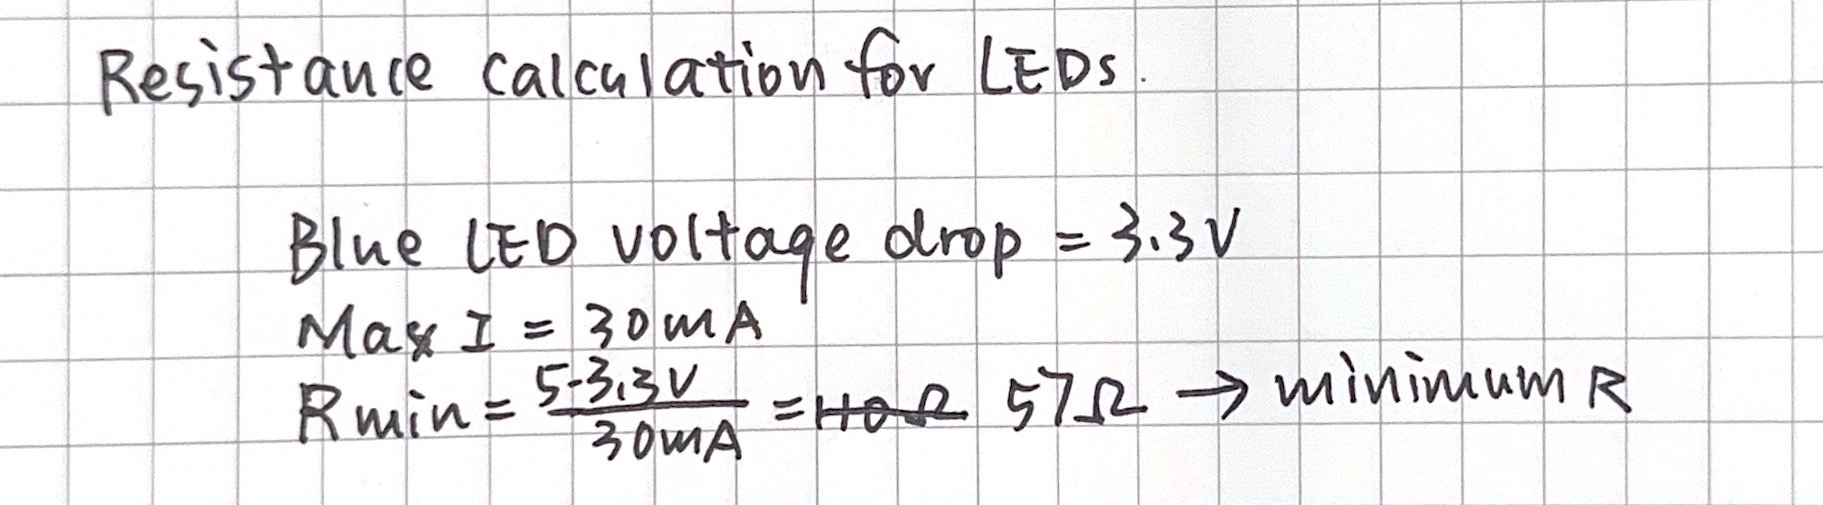 Resistance calculation for LEDs.
Blue LED voltage drop = 3.3V
Max I = 30mA
Rmin = 5-3.3V / 30mA = 110Ω 57Ω → minimum R